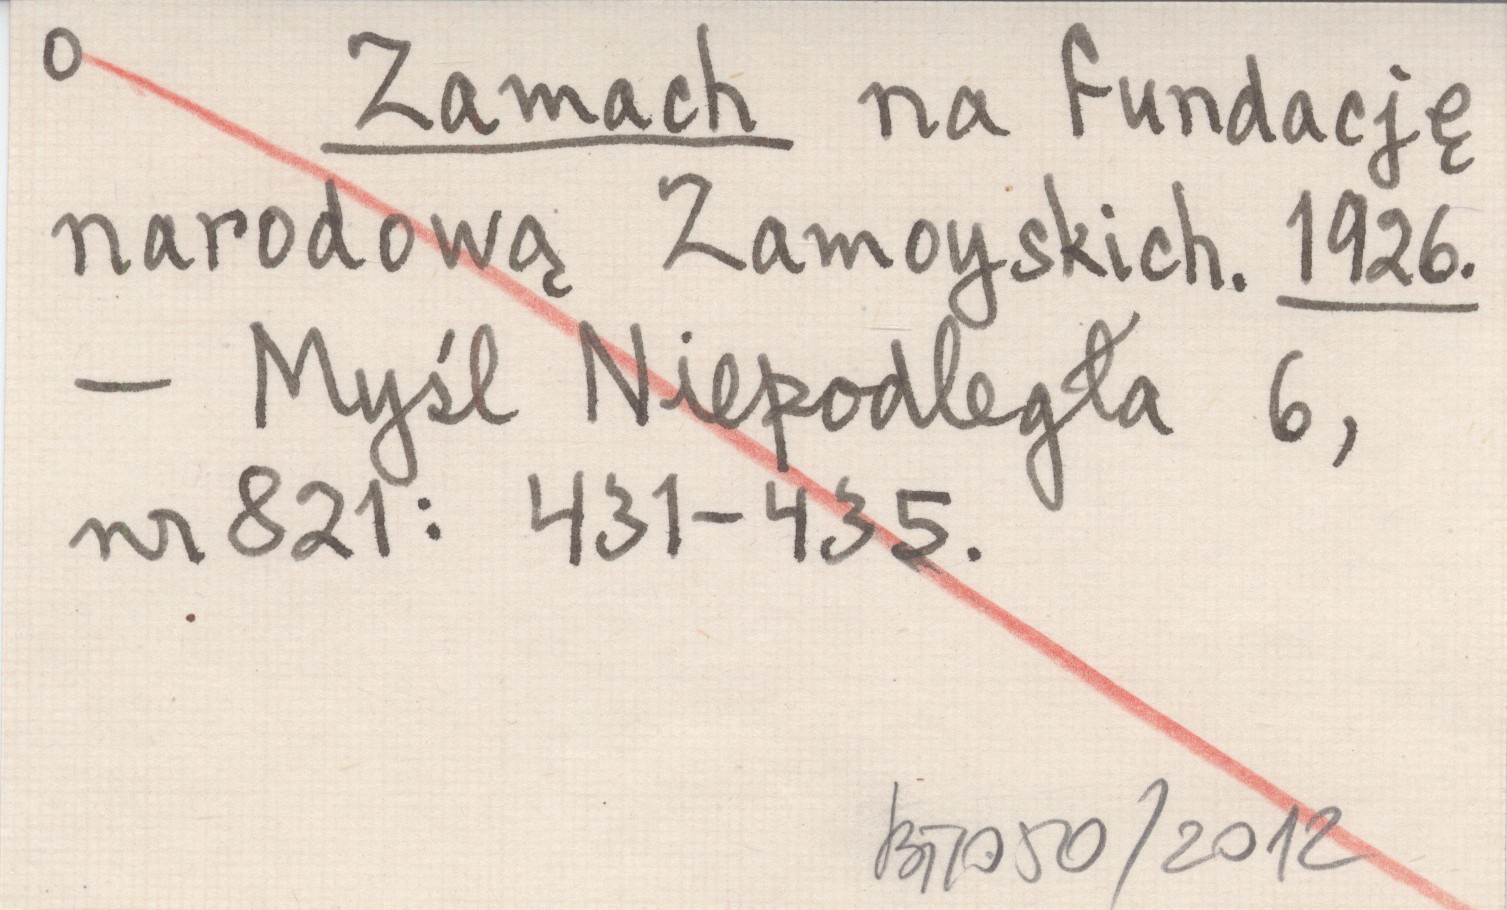 0 Zamach na Fundację
narodową Zamoyskich. 1926.
— Myśl Niepodległa 6,
nr 821: 431-435.
/2012